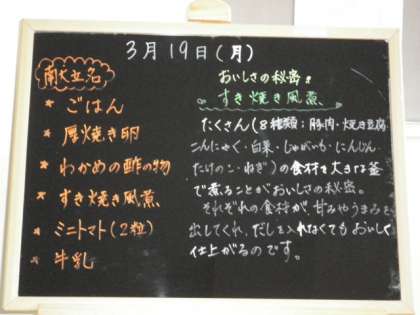 3月19日(月)
献立名
* ごはん
* 厚焼き卵
* わかめの酢の物
* すき焼き風煮
* ミニトマト(2粒)
* 牛乳
おいしさの秘密:
すき焼き風煮
たくさん(8種類:豚肉・焼き豆腐
こんにゃく・白菜・じゃがいも・にんじん・
たけのこ・ねぎ)の食材を大きな釜
で煮ることがおいしさの秘密。
それぞれの食材が、甘みやうまみを
出してくれ、だしを入れなくてもおいしく
仕上がるのです。